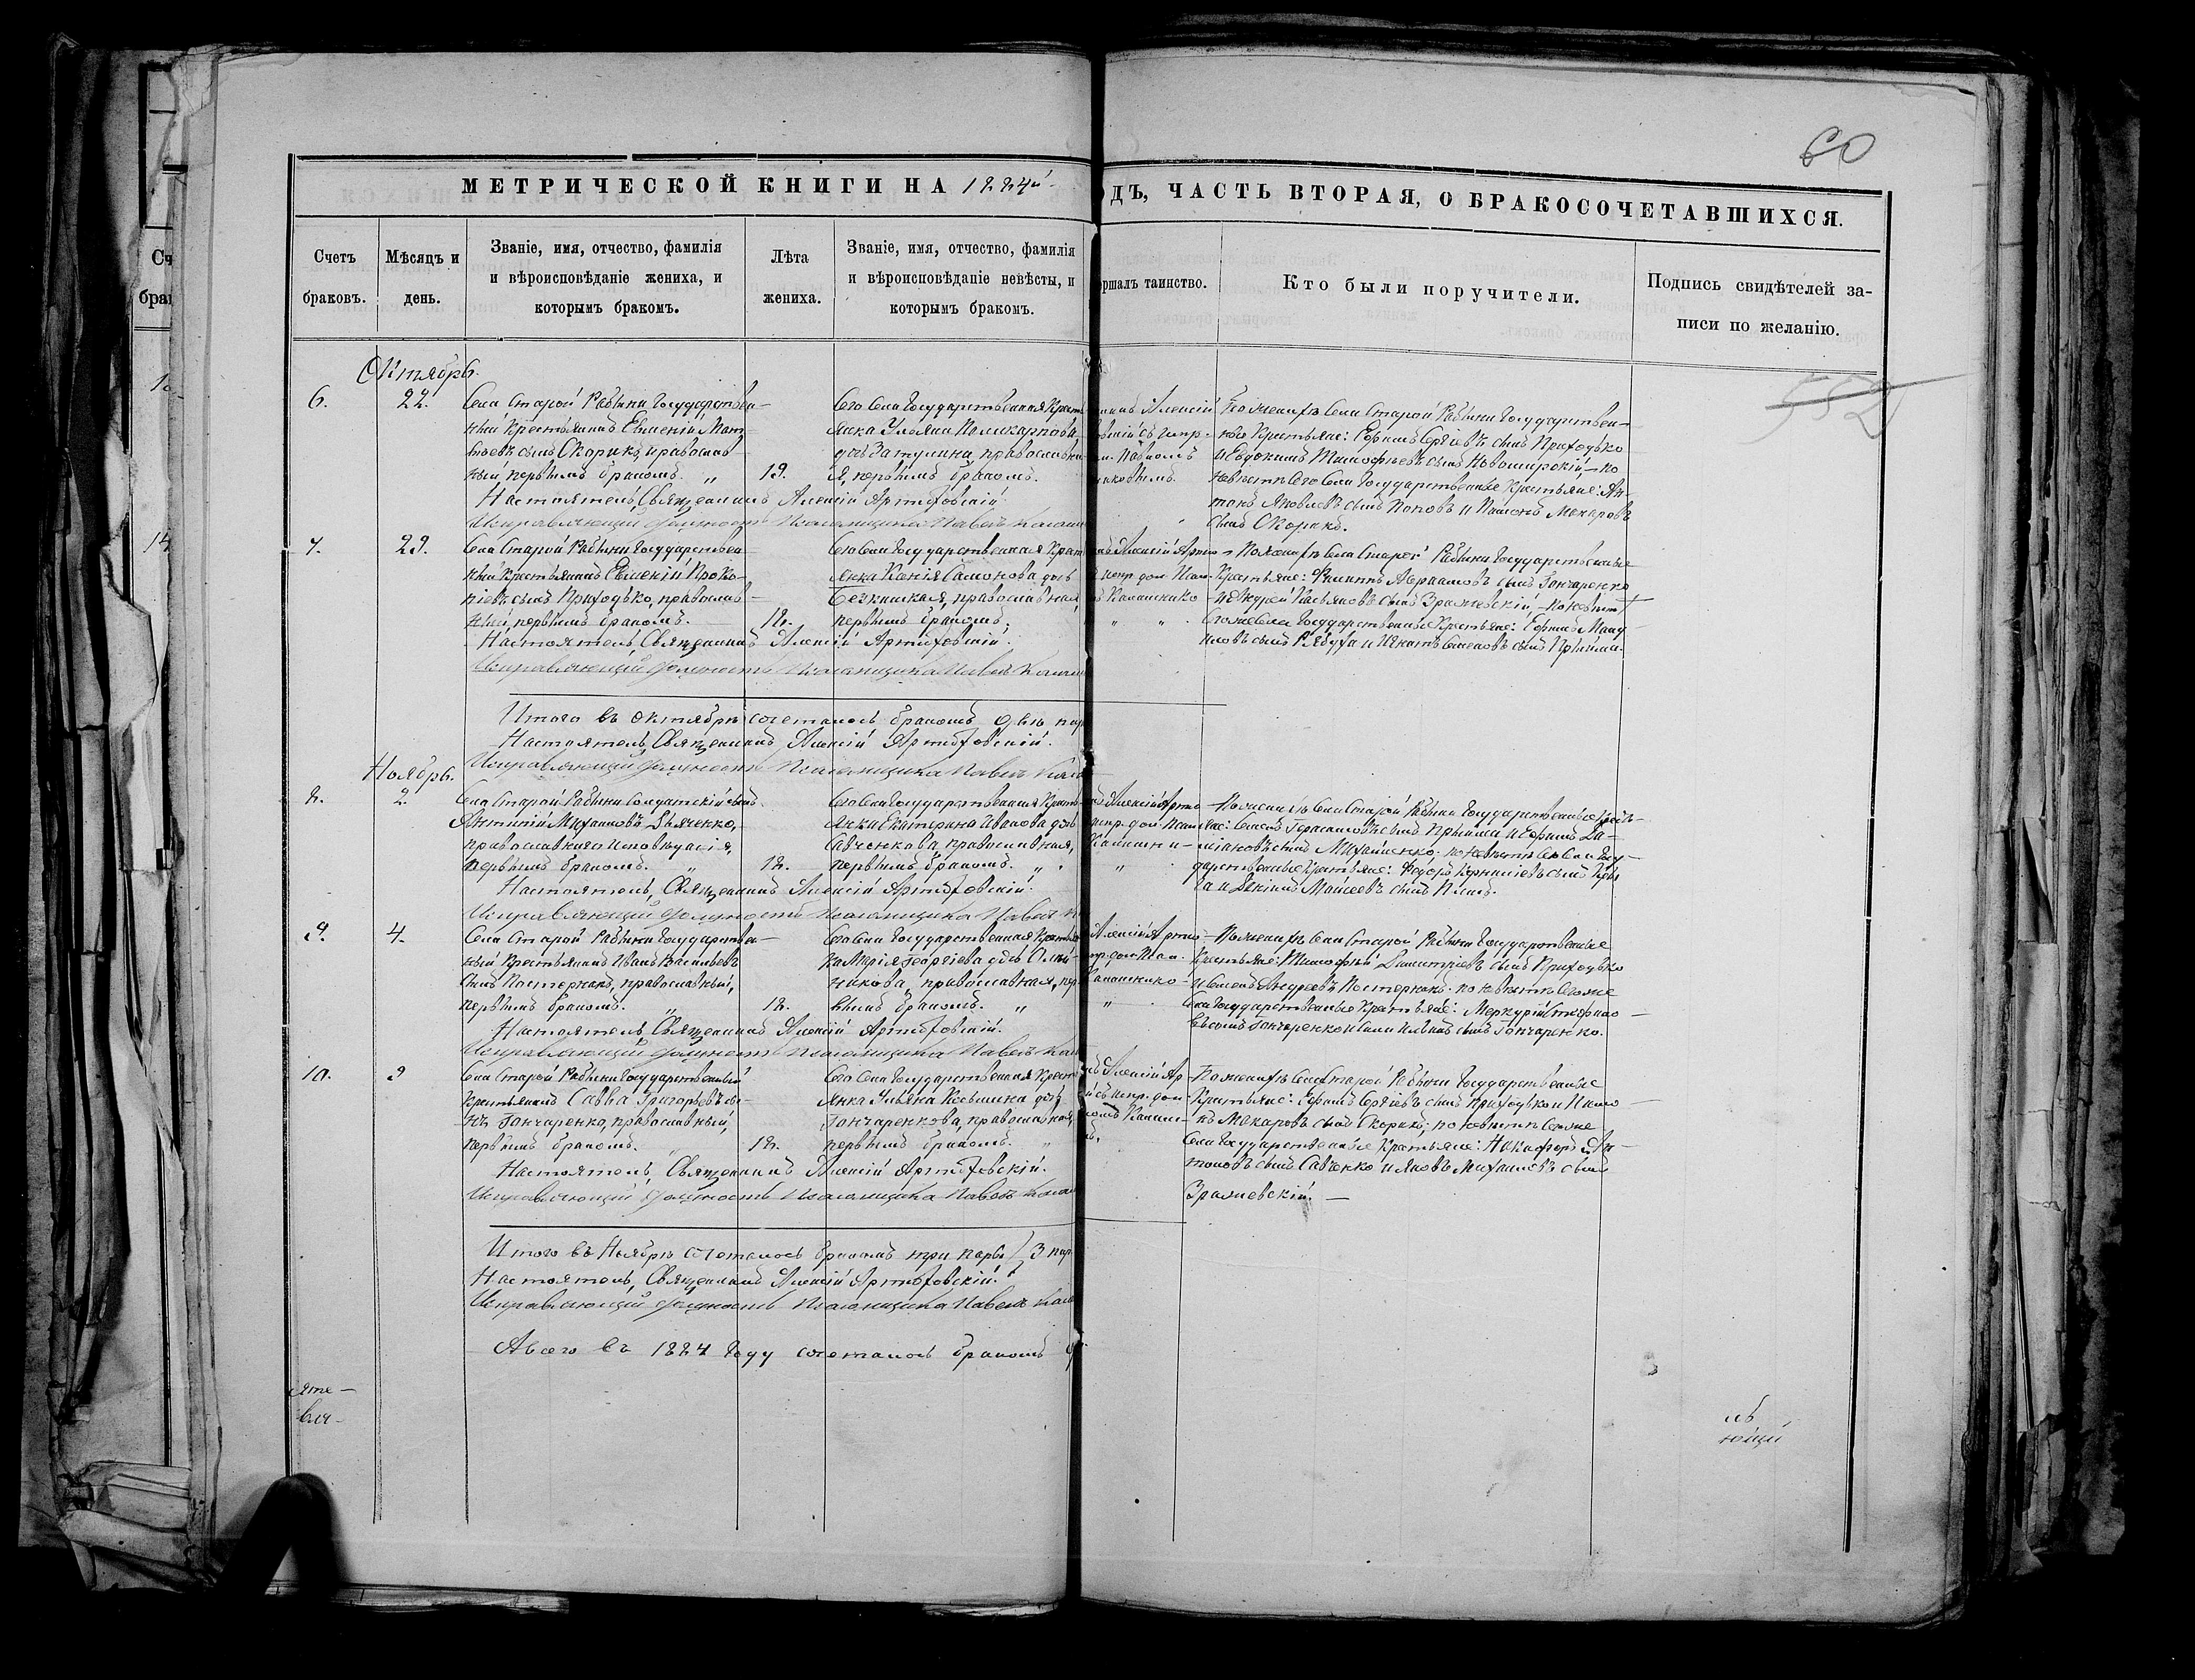 60
МЕТРИЧЕСКОЙ КНИГИ НА 1884й
ОДЪ, ЧАСТЬ ВТОРАЯ, О БРАКОСОЧЕТАВШИХСЯ.
Счетъ
браковъ.
Мѣсяцъ и
день.
Званіе, имя, отчество, фамилія
и вѣроисповѣданіе жениха, и
которымъ бракомъ.
Лѣта
жениха.
Званіе, имя, отчество, фамилія
и вѣроисповѣданіе невѣсты, и
которымъ бракомъ.
ршалъ таинство.
Кто были поручители.
Подпись свидѣтелей за-
писи по желанію.
552
Октябрь.
6.
22.
Села Старой Рябыни Государствен-
ный Крестьянинъ Евмений Мат-
вѣевъ сынъ Скорикъ, православ-
ный, первымъ бракомъ. „
19.
Сего села Государственная Кресть
янка Ульяна Поликарпова
дочь Затулина, православна-
я, первымъ бракомъ.
Алексій
Павломъ
По женихѣ Села Старой Рябыни Государствен-
ные Крестьяне: Ефимъ Сергіевъ сынъ Приходько
и Евдокимъ Тимофѣевъ сынъ Новомирскій, - по
невѣстѣ Сего Села Государственные Крестьяне: Ан-
тонъ Яковлевъ сынъ Поповъ и Пимонъ Макаровъ
сынъ Скорикъ.
Настоятель, Священникъ Алексій Артюховскій.
Исправляющій должность Псаломщика Павелъ
7.
29.
Села Старой Рябыни Государствен
ный Крестьянинъ Евмений Проко-
піевъ сынъ Приходько, православ-
ный, первымъ бракомъ.
18.
Сего Села Государственная Крест
янка Ксенія Самонова дочь
православная,
первымъ бракомъ.
Алексій Артю
По женихѣ Села Старой Рябыни Государственные
Крестьяне: Филиппъ Авраамовъ сынъ Гончаренко
сынъ Зражевскій, - по невѣст
Сего же Села Государственные Крестьяне: Ефимъ
сынъ Рябуха и Игнатъ Семеновъ сынъ Прыйма.
Настоятель, Священникъ Алексій Артюховскій.
Исправляющій должность Псаломщика Павелъ
Итого въ Октябрѣ сочеталось бракомъ двѣ пар
Настоятель, Священникъ Алексій Артюховскій.
Исправляющій должность Псаломщика Павелъ
Ноябрь.
8.
2.
Села Старой Рябыни Солдатскій сынъ
Антипій Михаиловъ Дьяченко,
православнаго исповѣданія,
первымъ бракомъ. „
18.
Сего Села Государственная Кресть
янка Екатерина Иванова дочь
Савченкова, православная,
первымъ бракомъ. „
Алексій Артю
По женихѣ Села Старой Рябыни Государственные Кресть-
яне: Семенъ Герасимовъ сынъ Прыйма и Ефимъ Да-
міановъ сынъ Михайленко. по невѣстѣ Сего Села Госу-
дарственные Крестьяне: Федоръ Корниліевъ сынъ
Моисеевъ сынъ
Настоятель, Священникъ Алексій Артюховскій.
Исправляющій должность Псаломщика Павелъ
9.
4.
Села Старой Рябыни Государствен-
ный Крестьянинъ Иванъ Васильевъ
сынъ Пастернакъ, православный,
первымъ бракомъ. „
18.
Сего Села Государственная Крестьян
ка Марія Георгіева дочь Олей-
никова, православная, пер
вымъ бракомъ. „
Алексій Артю
По женихѣ Села Старой Рябыни Государственные
Крестьяне: Тимофѣй Димитріевъ сынъ Приходько
и Семенъ Андреевъ Пастернакъ. по невѣстѣ Сего же
Села Государственные Крестьяне: Меркурій Стефано
въ сынъ Гончаренко и Сали Ильинъ сынъ Гончаренко.
Настоятель, Священникъ Алексій Артюховскій.
Исправляющій должность Псаломщика Павелъ
10.
9
Села Старой Рябыни Государственный
Крестьянинъ Савва Григорьевъ сы-
нъ Гончаренко, православный,
первымъ бракомъ.
18.
Сего Села Государственная Кресть
янка Ульяна Косьмина дочь
Гончаренкова, православная,
первымъ бракомъ. „
Алексій Ар
По женихѣ Села Старой Рябыни Государственные
Крестьяне: Ефимъ Сергіевъ сынъ Приходько и Пимо
нъ Макаровъ сынъ Скорикъ; по невѣстѣ Сего же
Села Государственные Крестьяне: Никифоръ Ан-
тоновъ сынъ Савченко и Яковъ Михаиловъ сынъ
Зражевскій. —
Настоятель, Священникъ Алексій Артюховскій.
Исправляющій должность Псаломщика Павелъ
Итого въ Ноябрѣ сочеталось бракомъ три пары / 3 пар
Настоятель, Священникъ Алексій Артюховскій.
Исправляющій должность Псаломщика Павелъ
А всего въ 1884 году сочеталось бракомъ
яте-
вля-
ющій